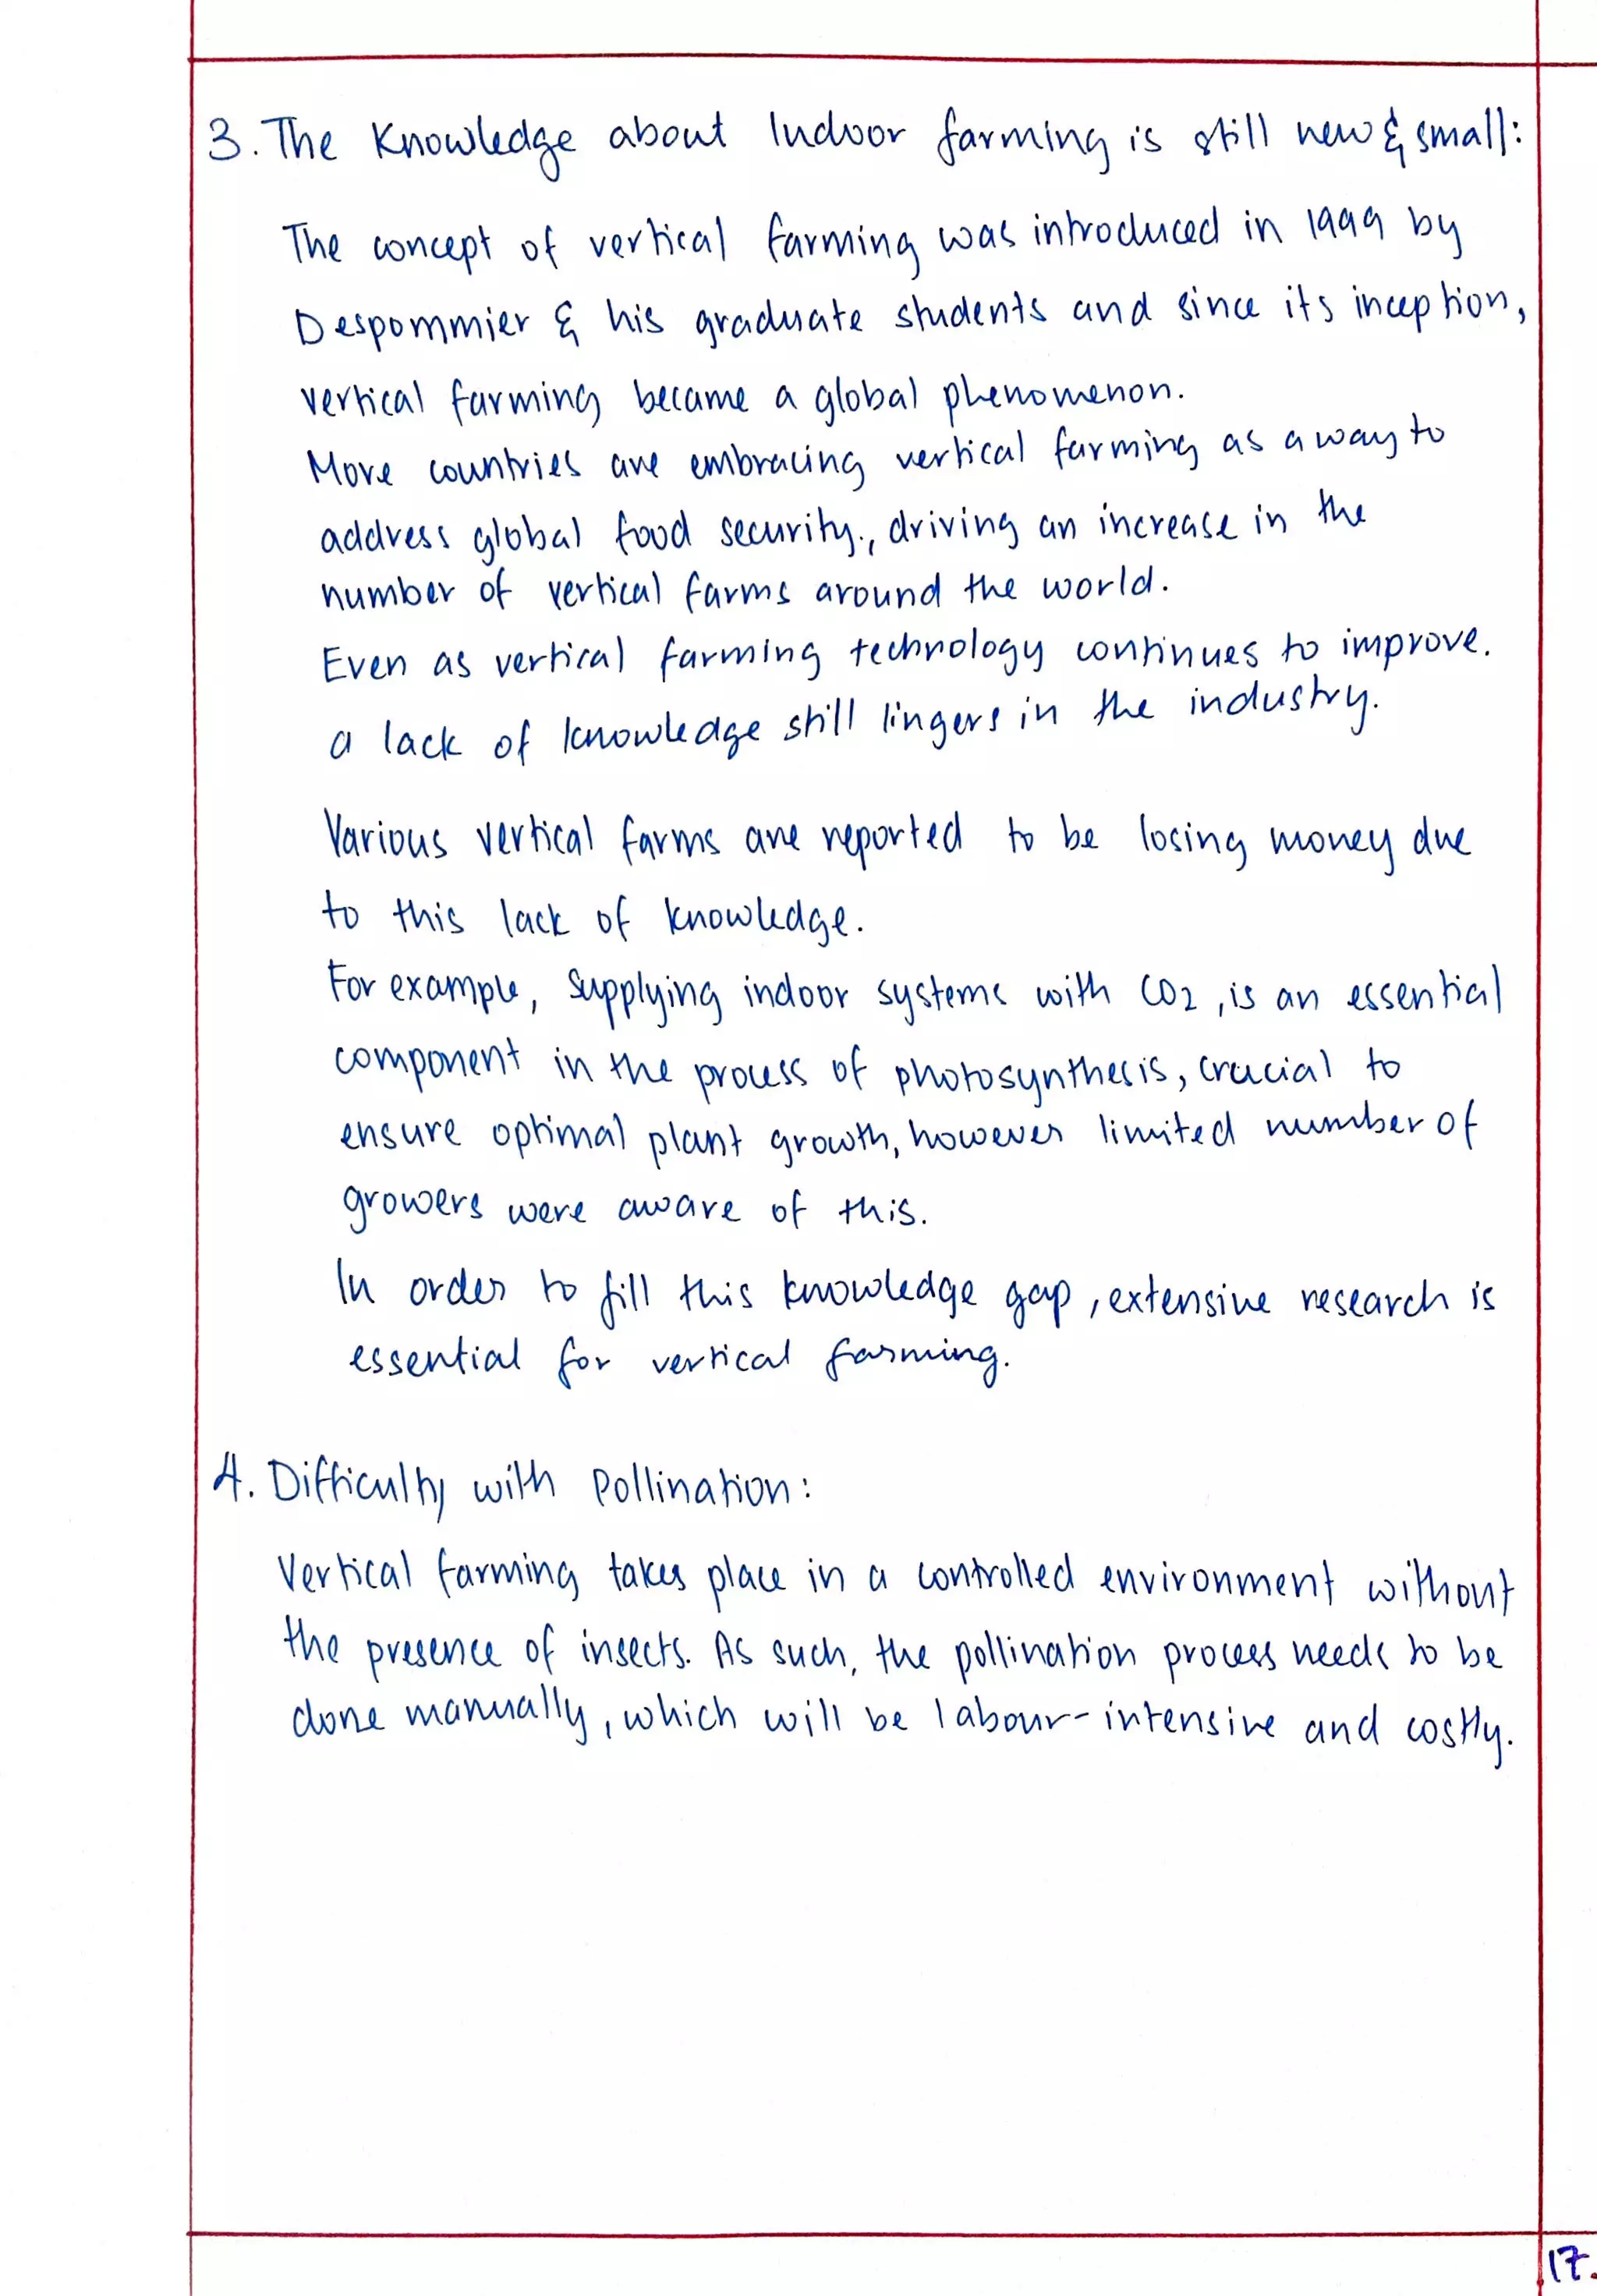 3. The Knowledge about Indoor farming is still new & small:
The concept of vertical farming was introduced in 1999 by
Despommier & his graduate students and since its inception,
vertical farming became a global phenomenon.
More countries are embracing vertical farming as a way to
address global food security., driving an increase in the
number of vertical farms around the world.
Even as vertical farming technology continues to improve.
a lack of knowledge still lingers in the industry.
Various vertical farms are reported to be losing money due
to this lack of knowledge.
For example, Supplying indoor systems with CO2, is an essential
component in the process of photosynthesis, crucial to
ensure optimal plant growth, however limited number of
growers were aware of this.
In order to fill this knowledge gap, extensive research is
essential for vertical farming.
4. Difficulty with Pollination:
Vertical farming takes place in a controlled environment without
the presence of insects. As such, the pollination process needs to be
done manually, which will be labour-intensive and costly.
17.